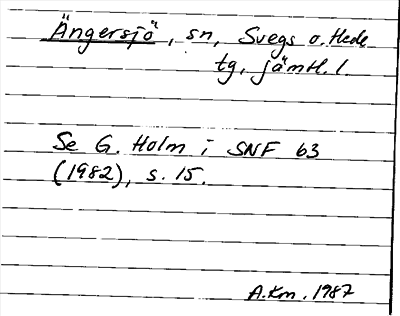 Ängersjö, sn, Svegs o. Hede
tg, Jämtl. l.
Se G. Holm i SNF 63
(1982), s. 15.
A.Km. 1987